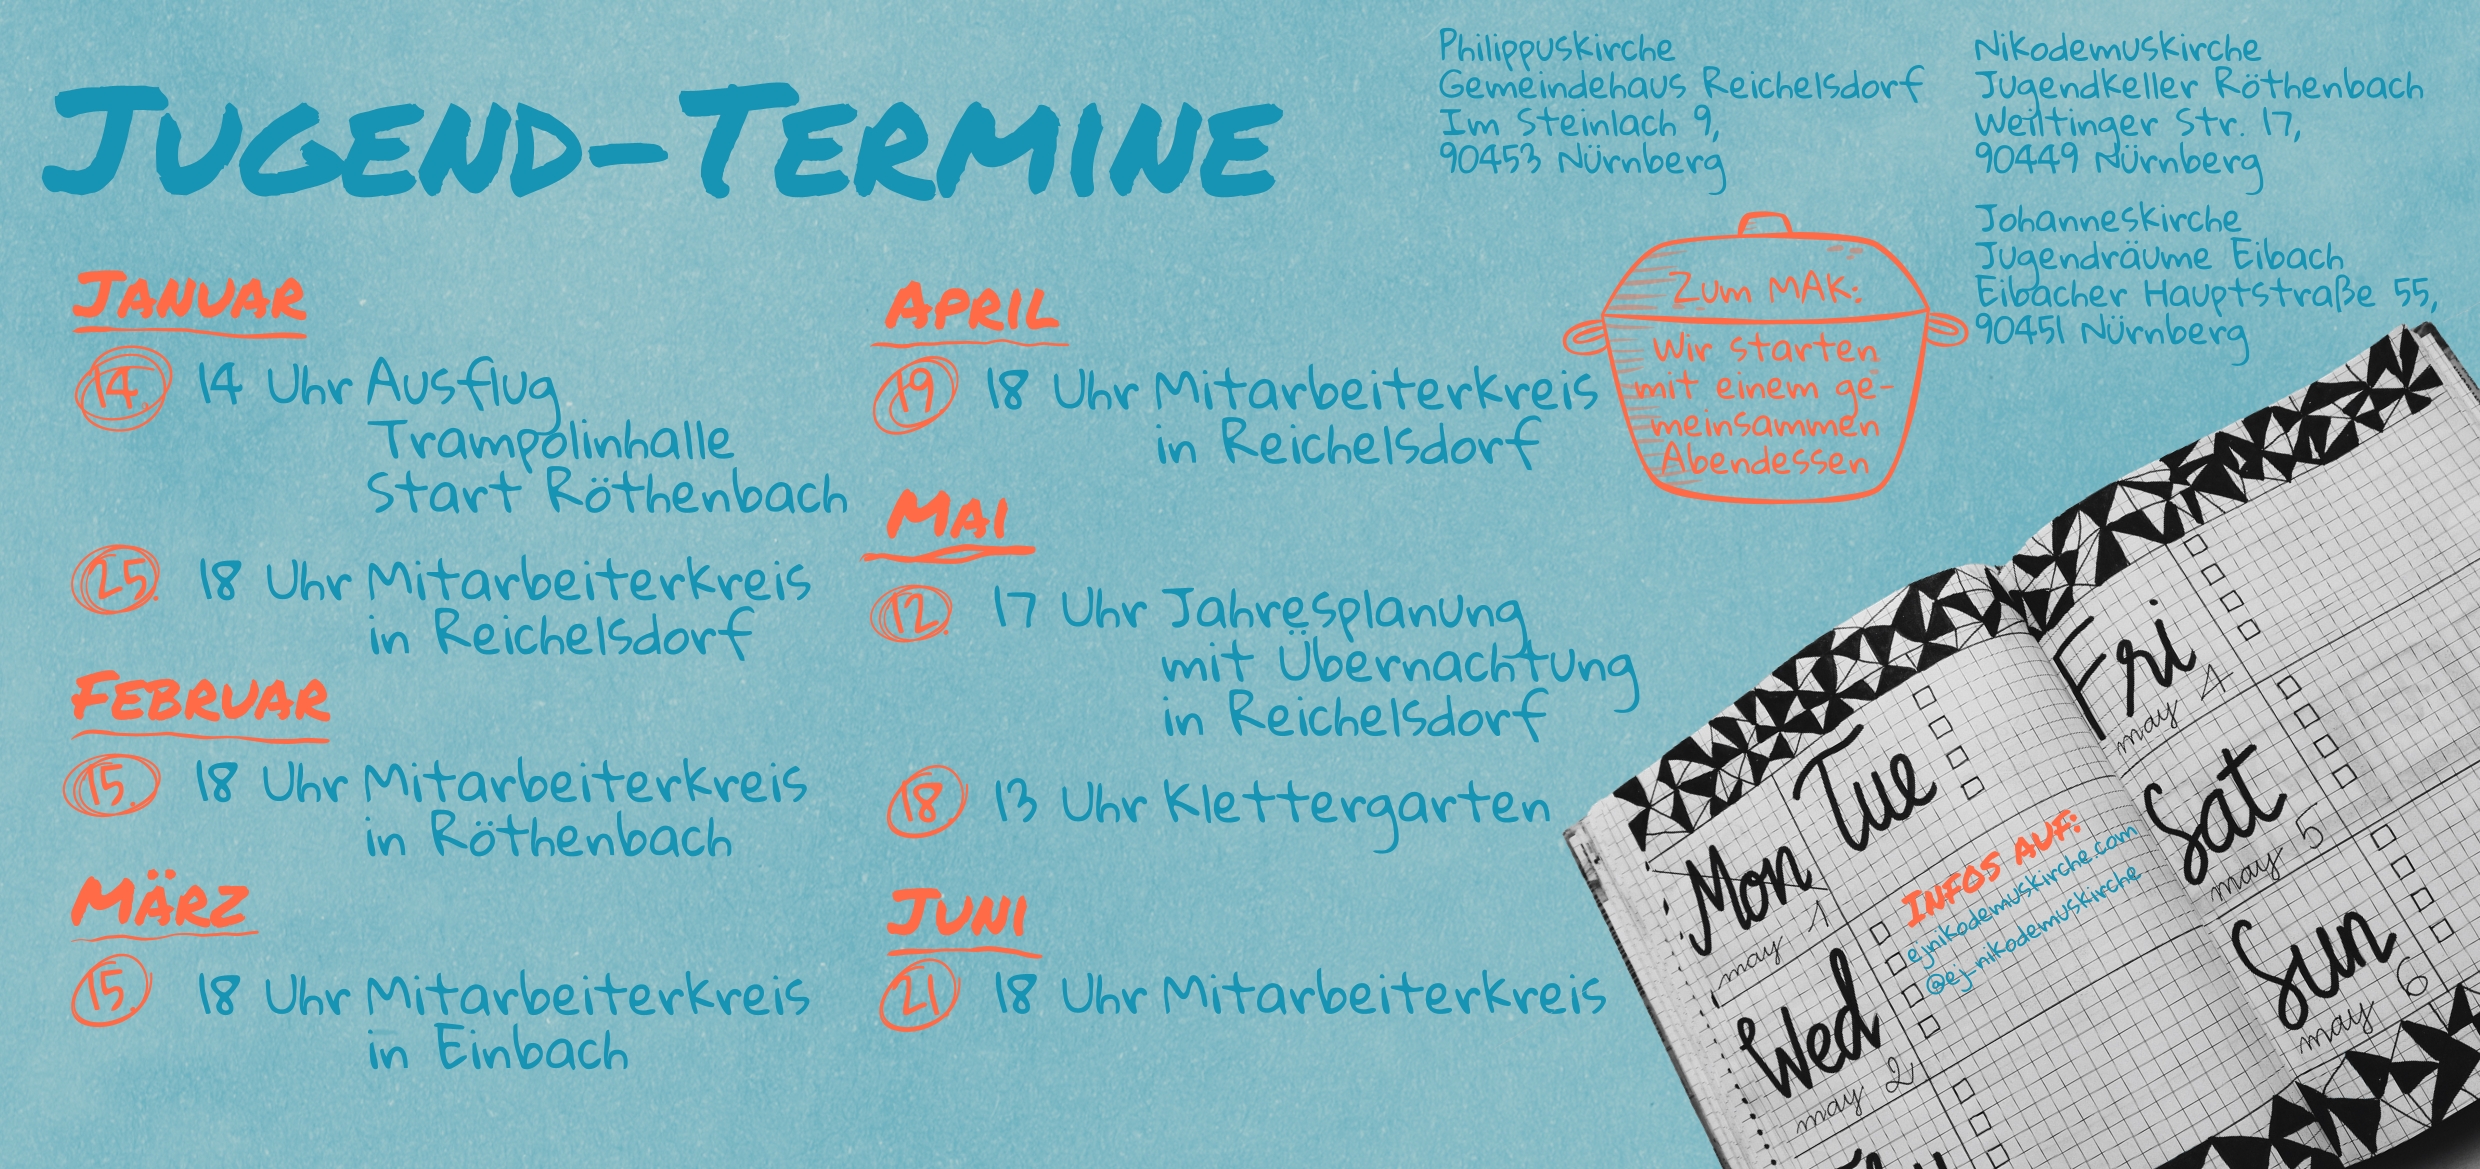 Jugend-Termine
Philippuskirche
Gemeindehaus Reichelsdorf
Im Steinlach 9,
90453 Nürnberg
Nikodemuskirche
Jugendkeller Röthenbach
Weiltinger Str. 17,
90449 Nürnberg
Johanneskirche
Jugendräume Eibach
Eibacher Hauptstraße 55,
90451 Nürnberg
Januar
14. 14 Uhr Ausflug
Trampolinhalle
Start Röthenbach
25. 18 Uhr Mitarbeiterkreis
in Reichelsdorf
Februar
15. 18 Uhr Mitarbeiterkreis
in Röthenbach
März
15. 18 Uhr Mitarbeiterkreis
in Einbach
April
19 18 Uhr Mitarbeiterkreis
in Reichelsdorf
Mai
12. 17 Uhr Jahresplanung
mit Übernachtung
in Reichelsdorf
18 13 Uhr Klettergarten
Juni
21 18 Uhr Mitarbeiterkreis
Zum MAK:
Wir starten
mit einem ge-
meinsammen
Abendessen
Mon
may 1
Tue
Wed
may 2
Infos auf:
ejnikodemuskirche.com
@ej_nikodemuskirche
Fri
may 4
Sat
may 5
Sun
may 6